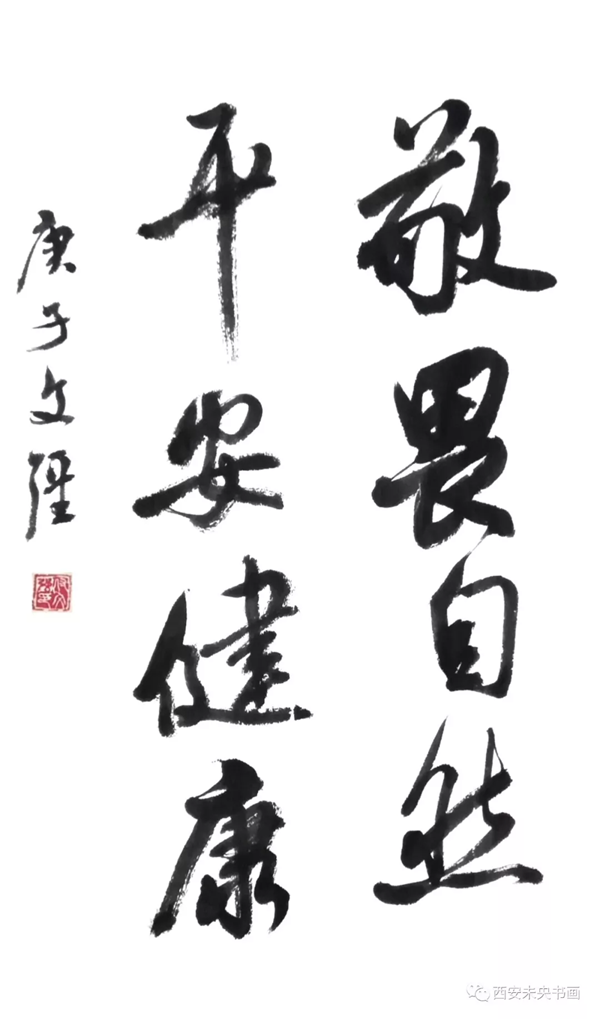 敬畏自然
平安健康
庚子文疆
西安未央书画